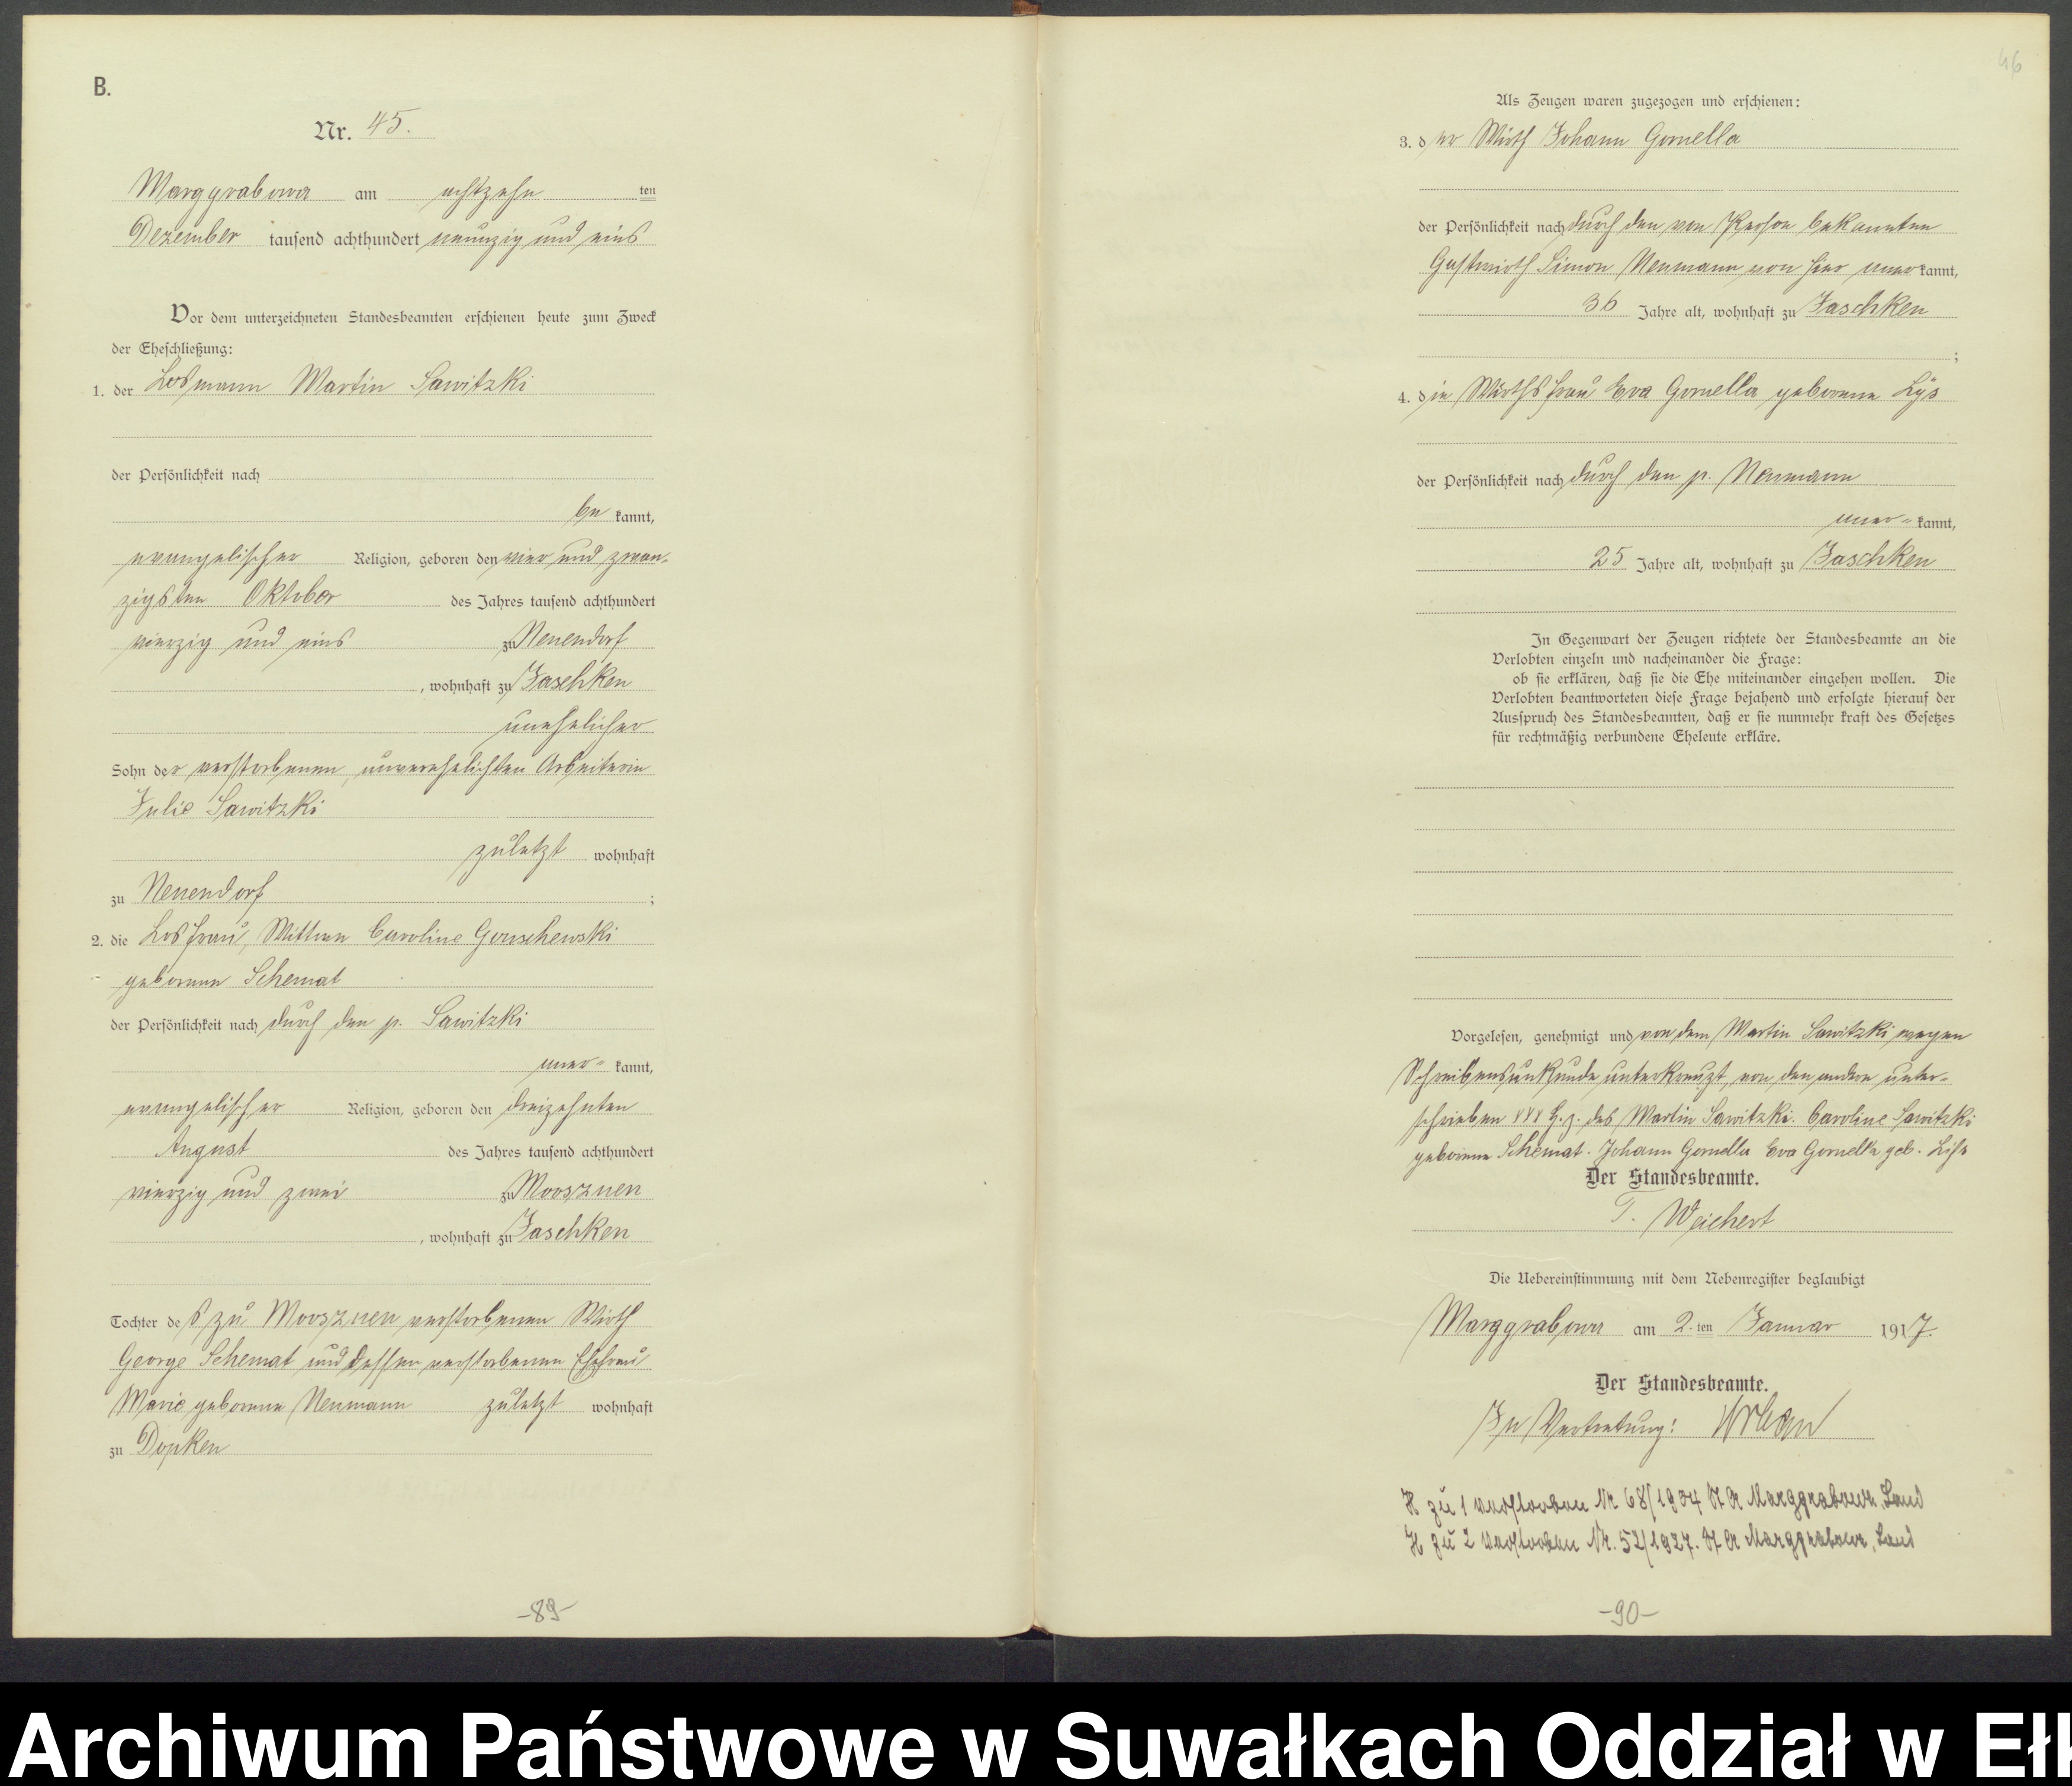 B.
Nr. 45.
Marggrabowa am achtzehn ten
Dezember tausend achthundert neunzig und eins
Vor dem unterzeichneten Standesbeamten erschienen heute zum Zweck
der Eheschließung:
1. der Losmann Martin Sawitzki
der Persönlichkeit nach
be kannt,
evangelischer Religion, geboren den vier und zwan-
zigsten Oktober des Jahres tausend achthundert
vierzig und eins zu Neuendorf
, wohnhaft zu Jaschken
unehelicher
Sohn der verstorbenen, unverehelichten Arbeiterin
Julie Sawitzki
zuletzt wohnhaft
zu Neuendorf ;
2. die Losfrau, Wittwe Caroline Gouschewski
geborene Schemat
der Persönlichkeit nach durch den p. Sawitzki
aner- kannt,
evangelischer Religion, geboren den dreizehnten
August des Jahres tausend achthundert
vierzig und zwei zu Moosznen
, wohnhaft zu Jaschken
Tochter des zu Moosznen verstorbenen Wirth
George Schemat und dessen verstorbenen Ehefrau
Marie geborene Neumann zuletzt wohnhaft
zu Dopken
-89-
46
Als Zeugen waren zugezogen und erschienen:
3. der Wirth Johann Gornella
der Persönlichkeit nach durch den von Person bekannten
Gastwirth Simon Neumann von hier anerkannt,
36 Jahre alt, wohnhaft zu Jaschken
;
4. die Wirthsfrau Eva Gornella geborene Lÿs
der Persönlichkeit nach durch den p. Neumann
aner- kannt,
25 Jahre alt, wohnhaft zu Jaschken
In Gegenwart der Zeugen richtete der Standesbeamte an die
Verlobten einzeln und nacheinander die Frage:
ob sie erklären, daß sie die Ehe miteinander eingehen wollen. Die
Verlobten beantworteten diese Frage bejahend und erfolgte hierauf der
Ausspruch des Standesbeamten, daß er sie nunmehr kraft des Gesetzes
für rechtmäßig verbundene Eheleute erkläre.
Vorgelesen, genehmigt und von dem Martin Sawitzki wegen
Schreibensunkunde unterkreuzt, von den andern unter-
schrieben xxx H.z. des Martin Sawitzki. Caroline Sawitzki
geborene Schemat. Johann Gornella Eva Gornella geb. Lÿs
Der Standesbeamte.
T. Weichert
Die Uebereinstimmung mit dem Nebenregister beglaubigt
Marggrabowa am 2. ten Januar 1917.
Der Standesbeamte.
In Vertretung: Urban
H zu 1 verstorben Nr 68/1904 St A Marggrabowa, Land
H zu 2 verstorben Nr. 52/1927. St A Marggrabowa, Land
-90-
Archiwum Państwowe w Suwałkach Oddział w Ełk